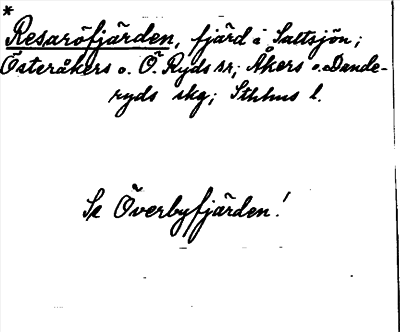 *
Resaröfjärden, fjärd i Saltsjön;
Österåkers o. Ö. Ryds sr; Åkers o. Dande-
ryds skg; Sthlms l.
Se Överbyfjärden!